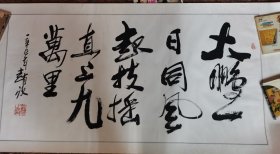 大鹏一
日同風
起扶摇
直上九
萬里